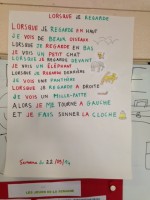 LORSQUE JE REGARDE
LORSQUE JE REGARDE EN HAUT
JE VOIS DE BEAUX OISEAUX
LORSQUE JE REGARDE EN BAS
JE VOIS UN PETIT CHAT
LORSQUE JE REGARDE DEVANT
JE VOIS UN ÉLÉPHANT
LORSQUE JE REGARDE DERRIÈRE
JE VOIS UNE PANTHÈRE
LORSQUE JE REGARDE A DROITE
JE VOIS UN MILLE-PATTE
ALORS JE ME TOURNE A GAUCHE
ET JE FAIS SONNER LA CLOCHE
LES JOURS DE LA SEMAINE